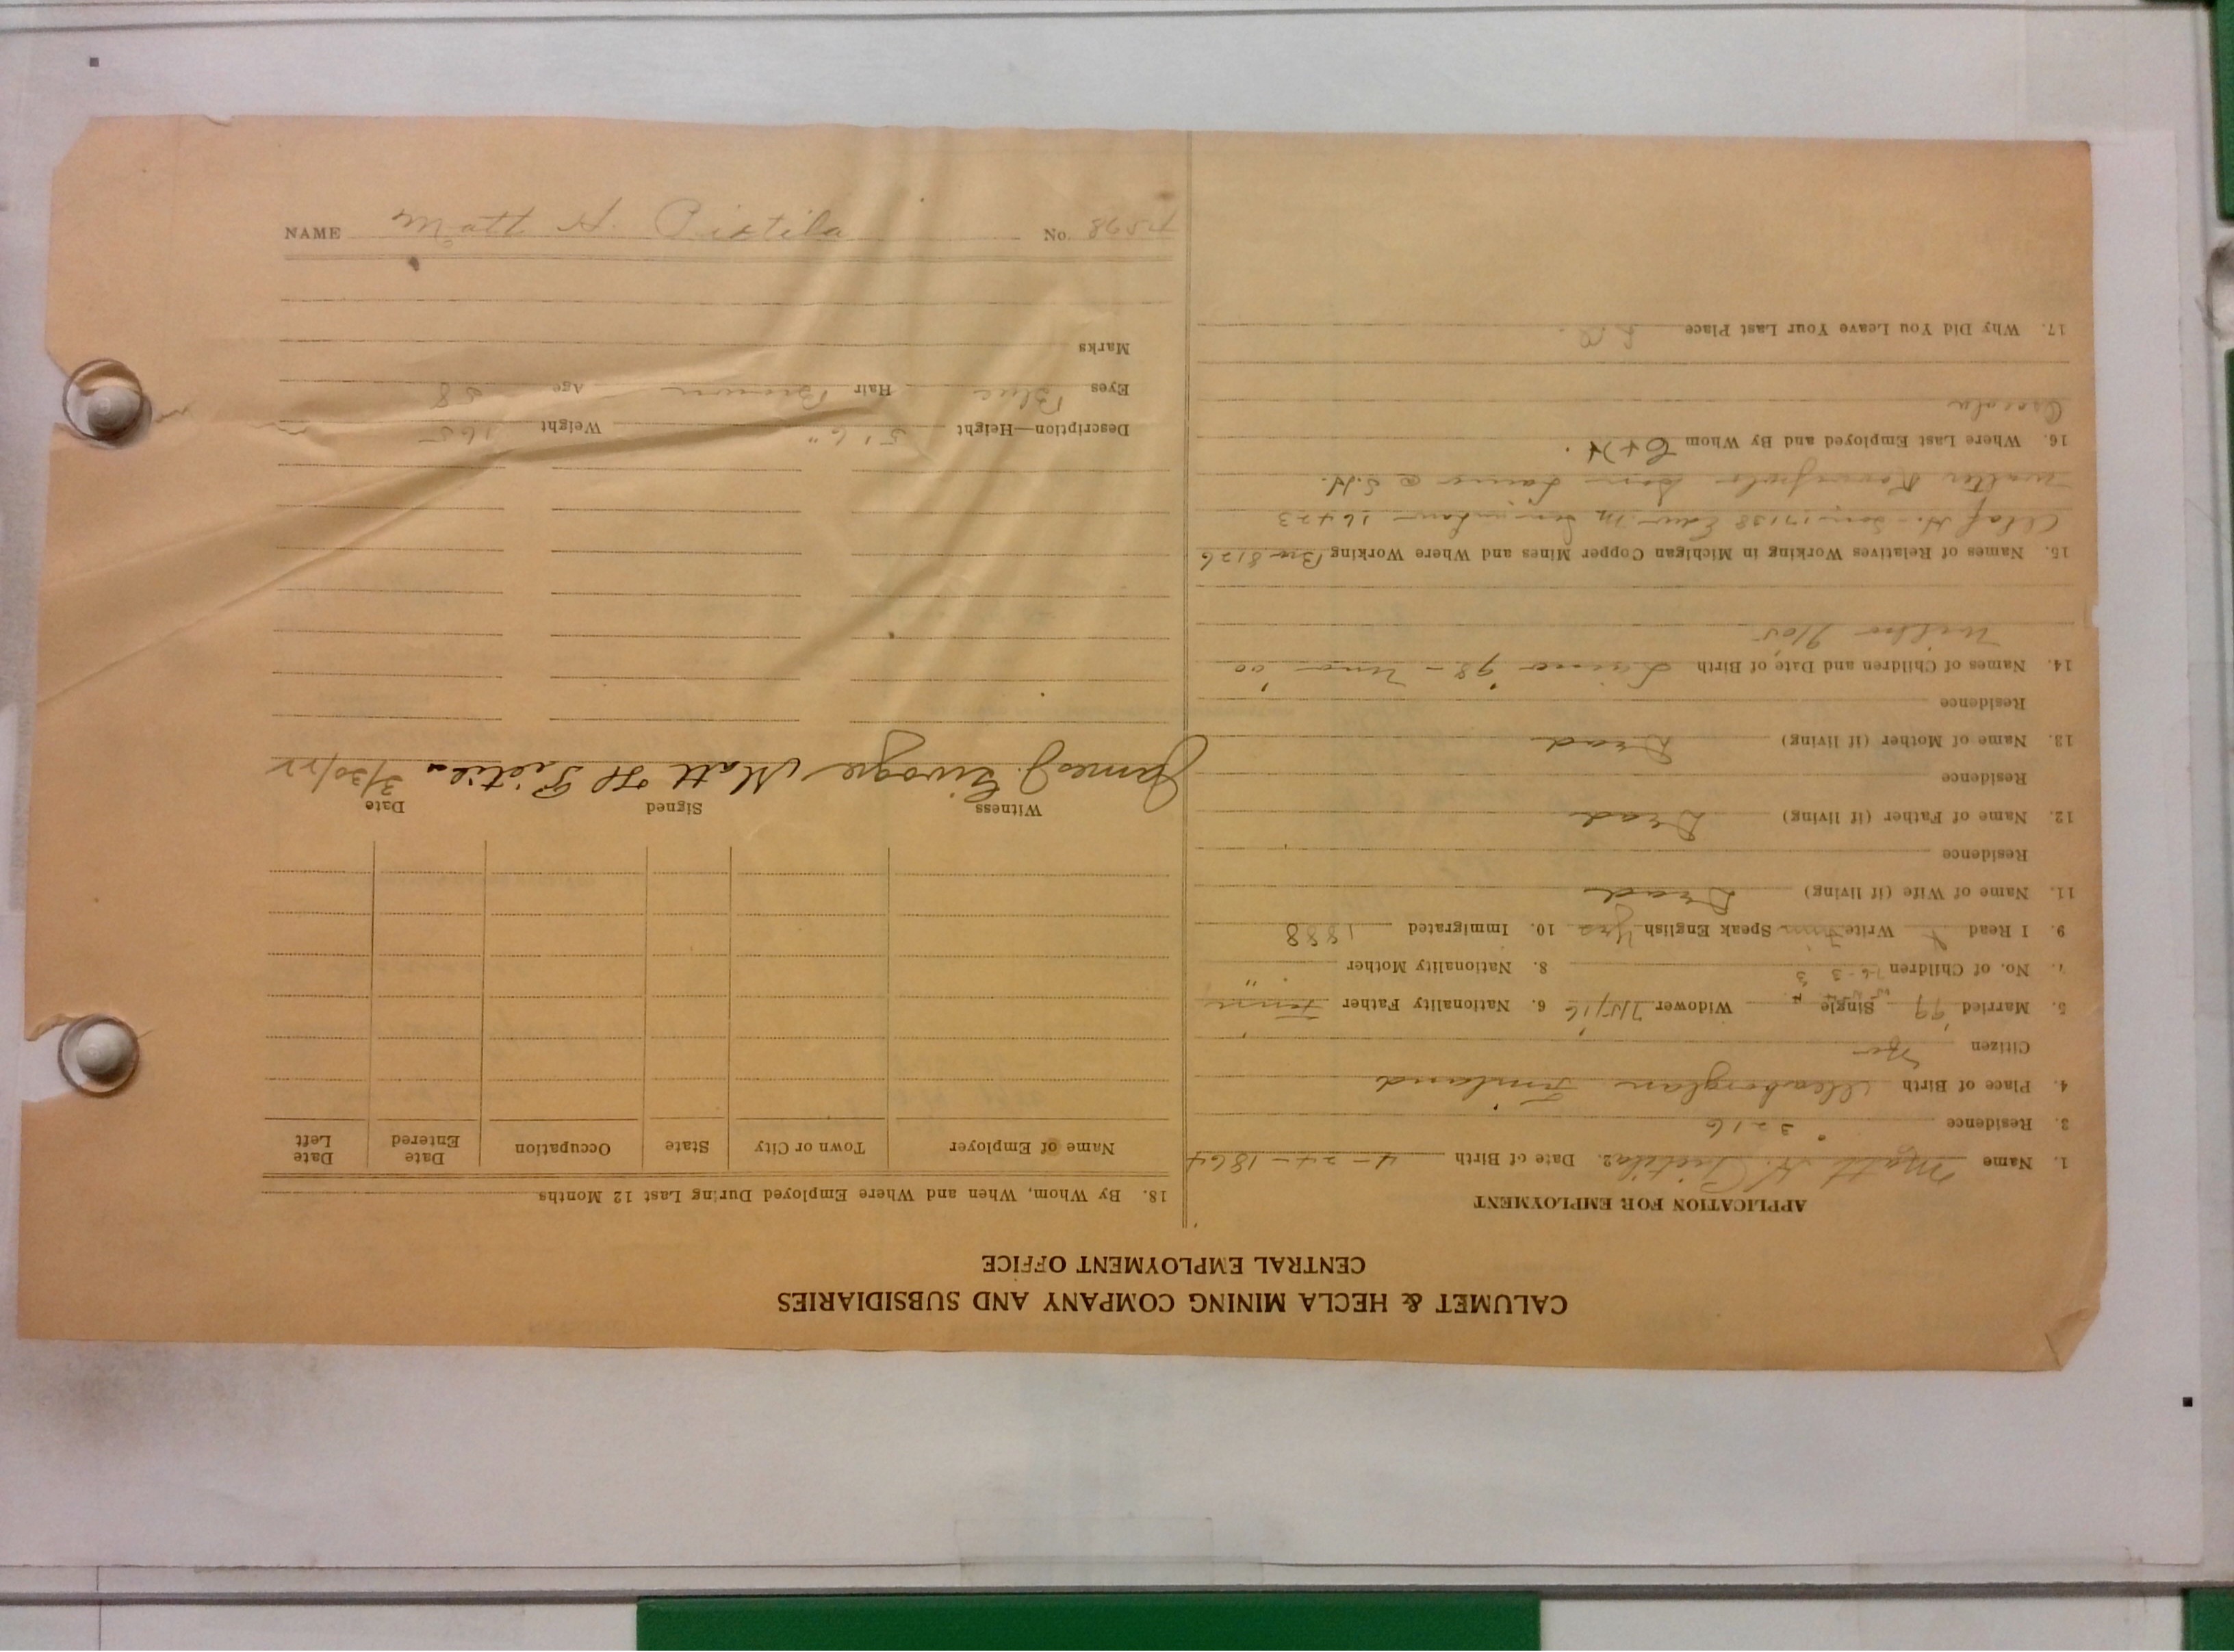 CALUMET & HECLA MINING COMPANY AND SUBSIDIARIES
CENTRAL EMPLOYMENT OFFICE
APPLICATION FOR EMPLOYMENT
1. Name Matt H. Pietila 2. Date of Birth 4-24-1864
3. Residence 3216
4. Place of Birth Finland
Citizen
5. Married '99 Single Widower 6. Nationality Father Finn
7. No. of Children 3 8. Nationality Mother "
9. I Read Write Finn Speak English Yes 10. Immigrated 1888
11. Name of Wife (if living) Dead
Residence
12. Name of Father (if living) Dead
Residence
13. Name of Mother (if living) Dead
Residence
14. Names of Children and Date of Birth '98 - '00
15. Names of Relatives Working in Michigan Copper Mines and Where Working 8126
Olaf H. - Son, 17138 in law 16423
Walter Son @ S.H.
16. Where Last Employed and By Whom C+H.
Osceola
17. Why Did You Leave Your Last Place
18. By Whom, When and Where Employed During Last 12 Months
Name of Employer Town or City State Occupation Date Entered Date Left
Witness Signed Date
James J. Matt H Pietila 3/30/22
Description—Height 5' 6" Weight 165
Eyes Blue Hair Brown Age 58
Marks
NAME Matt H. Pietila No.